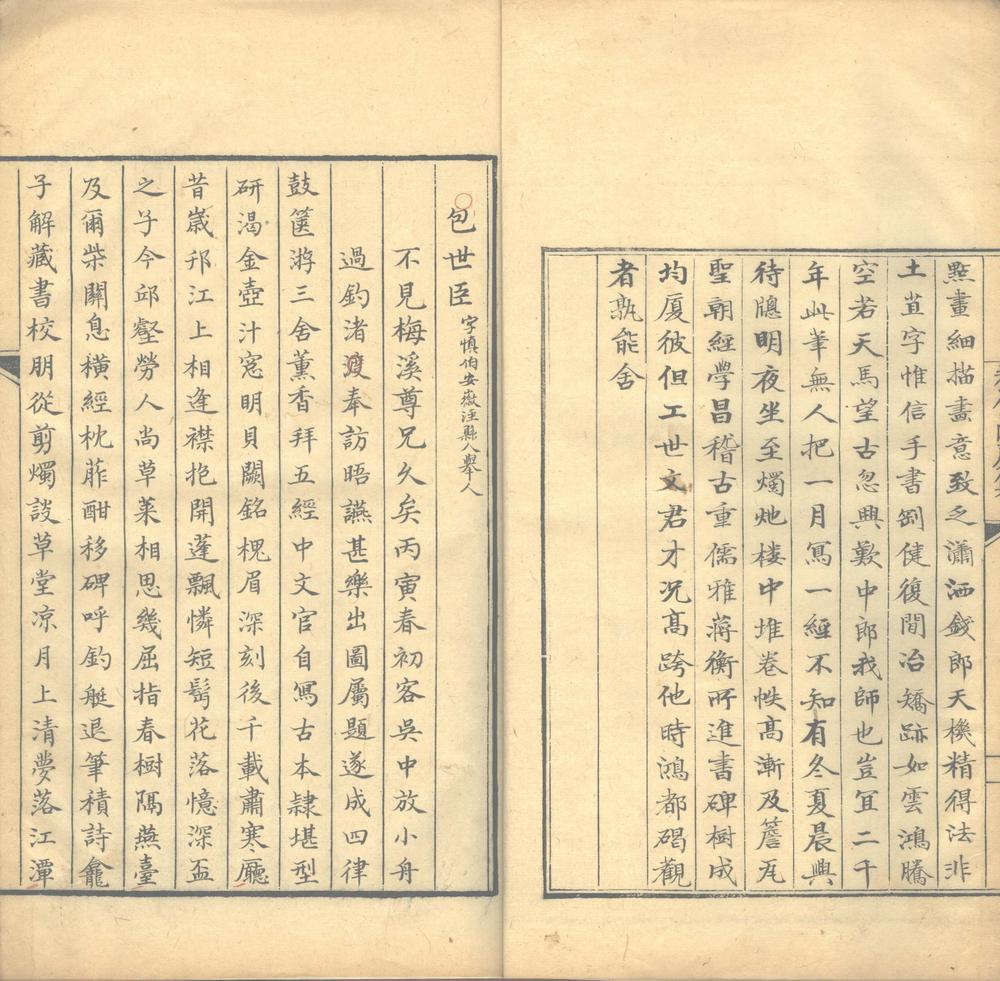 點畫細描畫意致乏瀟洒錢郎天機精得法非
土苴字惟信手書剛健復閒冶矯跡如雲鴻騰
空若天馬望古忽興歎中郎我師也豈宜二千
年此筆無人把一月寫一經不知有冬夏晨興
待牕明夜坐至燭灺楼中堆卷帙高漸及簷瓦
聖朝經學昌稽古重儒雅蔣衡所進書碑樹成
均厦彼但工世文君才况高跨他時鴻都碣觀
者孰能舍
包世臣 字慎伯安徽涇縣人舉人
不見梅溪尊兄久矣丙寅春初客吳中放小舟
過釣渚渡奉訪晤讌甚樂出圖屬題遂成四律
鼓篋游三舍薰香拜五經中文官自寫古本隸堪型
研渴金壺汁窓明貝闕銘槐眉深刻後千載肅寒廳
昔嵗邗江上相逢襟抱開蓬飄憐短鬢花落憶深盃
之子今邱壑勞人尚草萊相思幾屈指春樹隔燕臺
及爾柴關息橫經枕葄酣移碑呼釣艇退筆積詩龕
子解藏書校朋從剪燭談草堂凉月上清夢落江潭